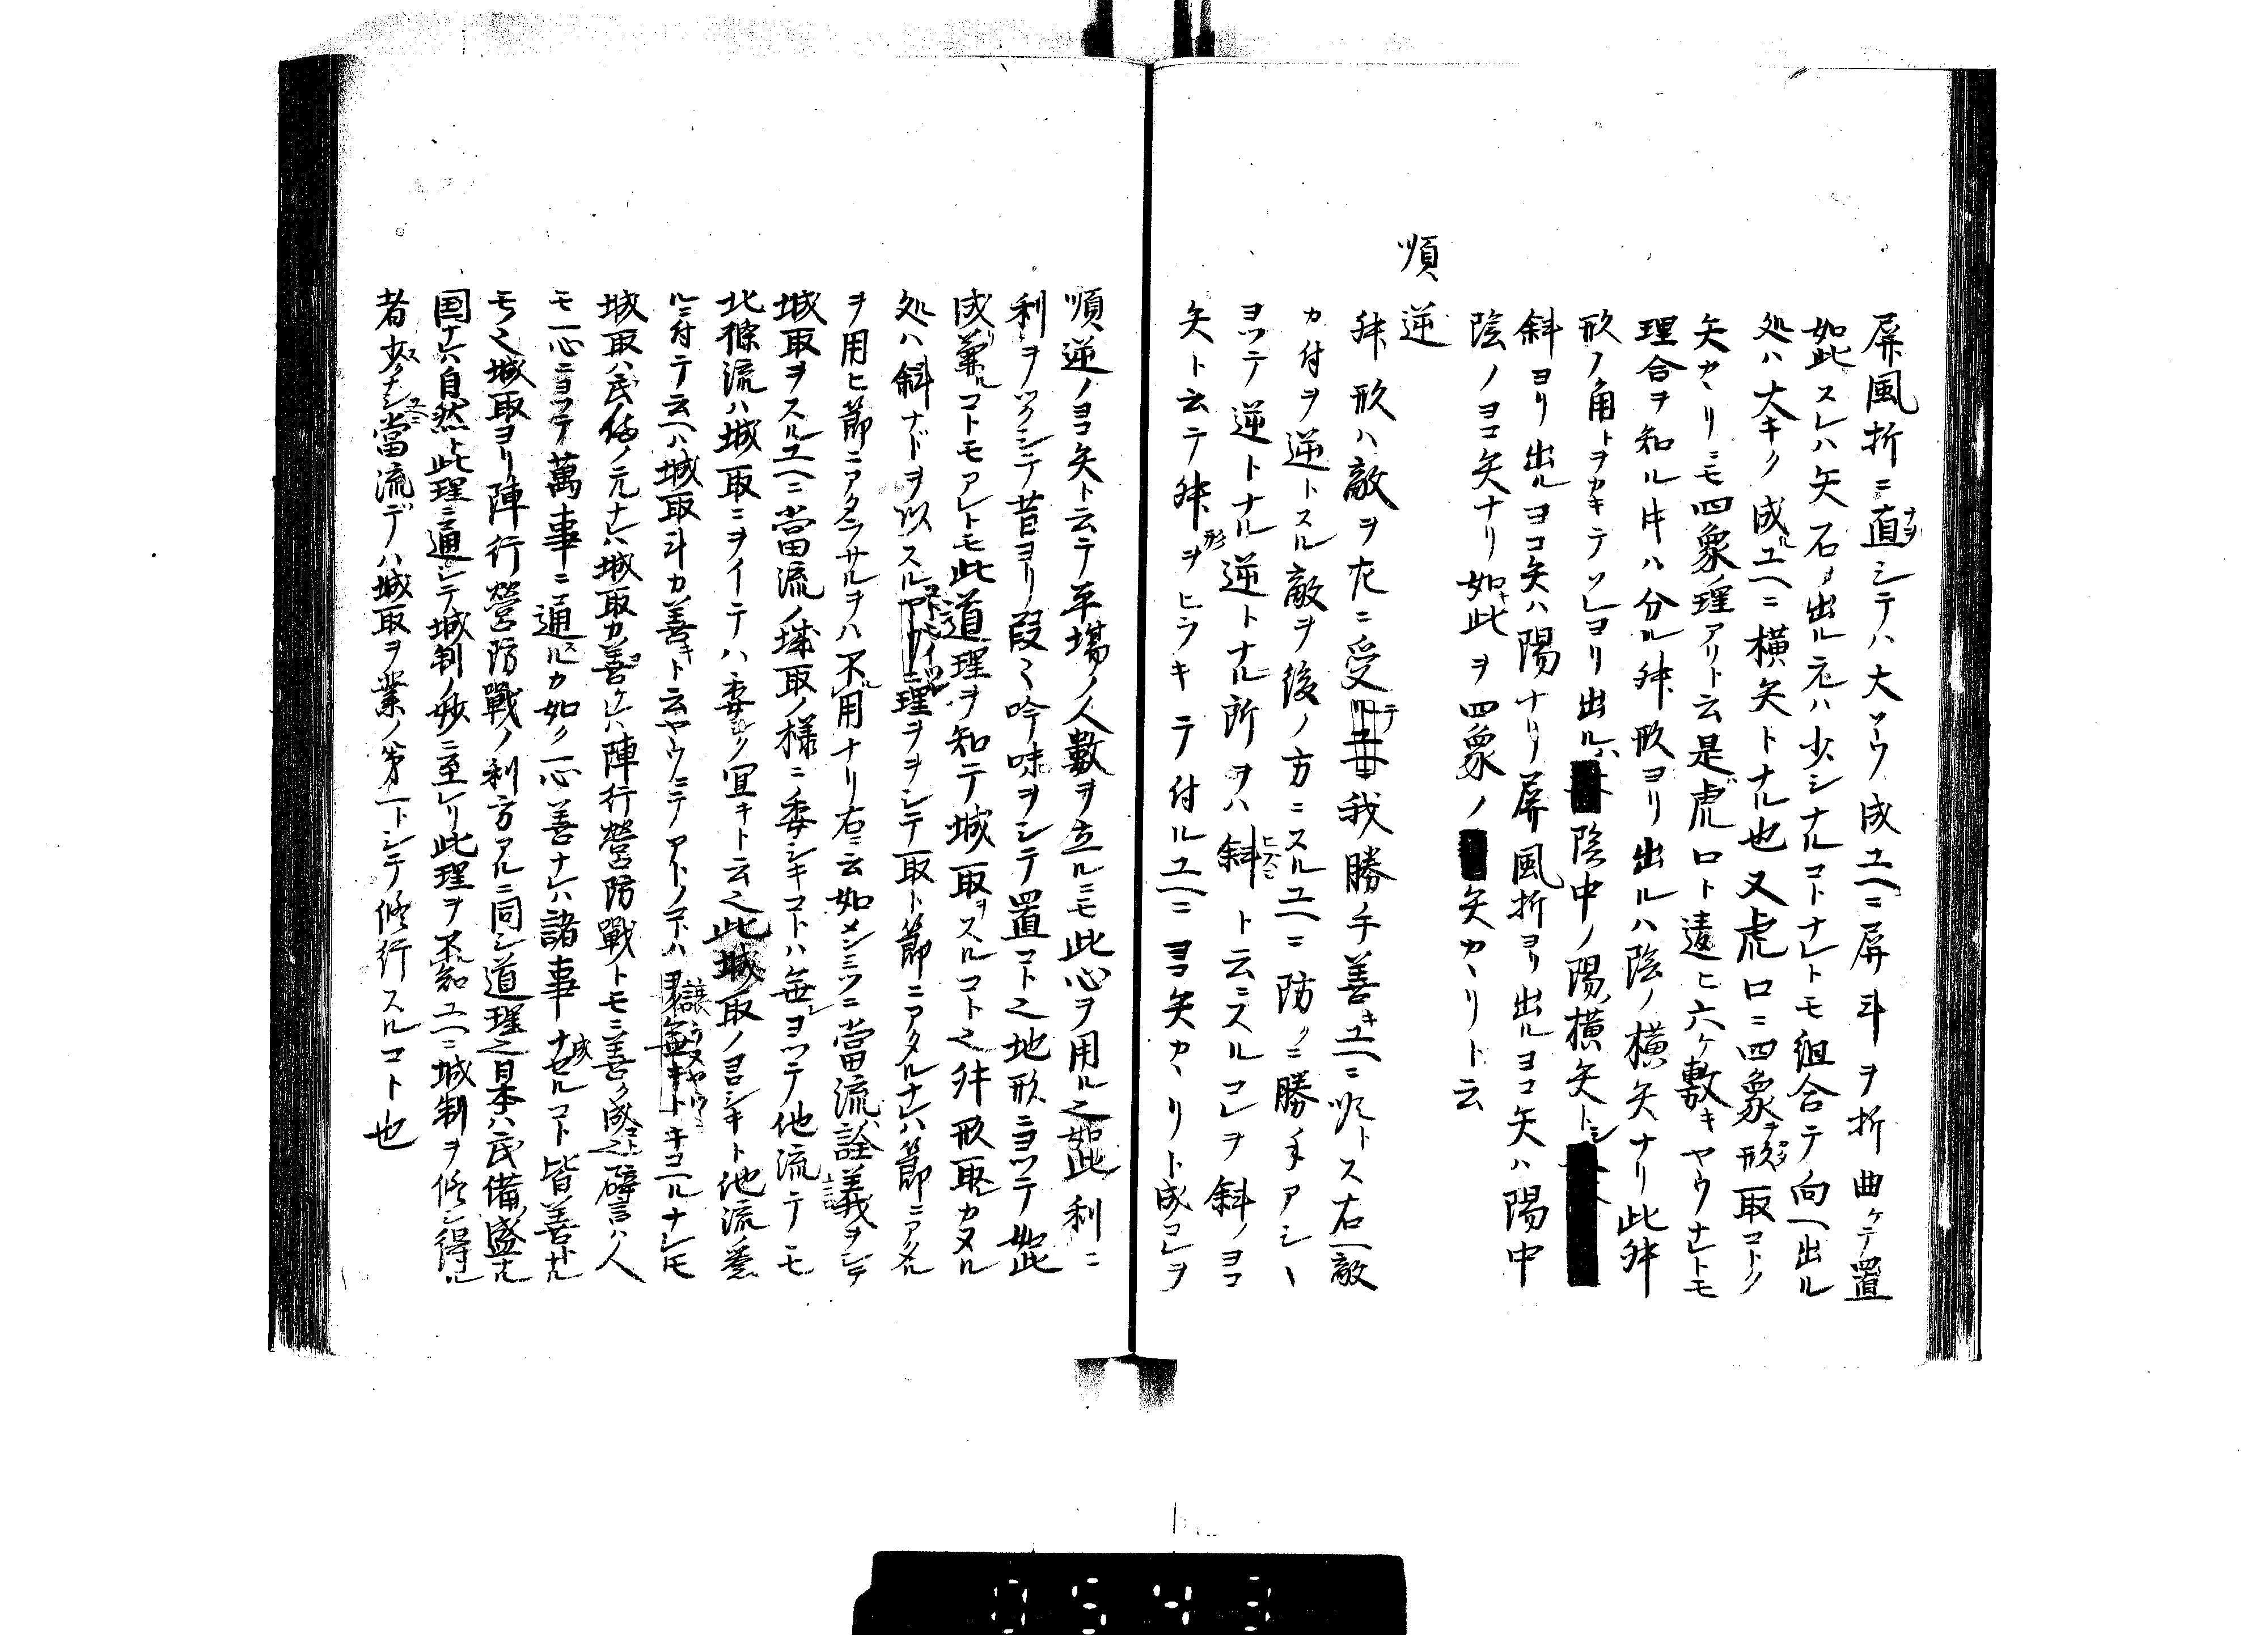 屏風折ニ直シテハ大ソウ成ユヘニ屏斗ヲ折曲ケテ置
如此スレハ矢石ノ出ル元ハ少シナルコトナレトモ組合テ向ヘ出ル
処ハ大キク成ルユヘニ横矢トナル也又虎口ニ四象ヲ形取コトク
矢カヽリニモ四象理アリト云是虎口ト違ヒ六ケ敷キヤウナレトモ
理合ヲ知ル牛ハ分ル舛形ヨリ出ルハ陰ノ横矢ナリ此舛
形ノ角トヲカキテソレヨリ出ルハ陰中ノ陽横矢トシ
斜ヨリ出ルヨコ矢ハ陽ナリ屏風折ヨリ出ルヨコ矢ハ陽中
陰ノヨコ矢ナリ如此キヲ四象ノ矢カヽリト云
順逆
舛形ハ敵ヲ左ニ受テ我勝手善キユヘニ順トス右ヘ敵
カ付ヲ逆トスル敵ヲ後ノ方ニスルユヘニ防クニ勝手アシヽ
ヨツテ逆トナル逆トナル所ヲハ斜ト云ニスルコレヲ斜ノヨコ
矢ト云テ舛形ヲヒラキテ付ルユヘニヨコ矢カヽリト成コレヲ
順逆ノヨコ矢ト云テ平場ノ人數ヲ立ルニモ此心ヲ用ル之如此利ニ
利ヲツクシテ昔ヨリ段々吟味ヲシテ置コト之地形ニヨツテ如此
成兼ルコトモアレトモ此道理ヲ知テ城取ヲスルコト之舛形取カタル
処ハ斜ナドヲ以スル理ヲヲシテ取ト節ニアタルナレハ節ニアタル
ヲ用ヒ節ニアタラサルヲハ不用ナリ右ニ云如メンミツニ當流ハ詮議ヲシテ
城取ヲスルユヘニ當流ノ城取ノ様ニ委シキコトハ無シヨツテ他流テモ
北條流ハ城取ニヲイテハ委ク宜キト云之此城取ノヨロシキト他流ノ委
ルニ付テ云ヘハ城取斗カ善キト云ヤウニテアトノコトハキコヘルナレモ
城取ハ民備ノ元ナレハ城取カ善ケレハ陣行營防戰トモニ善ク成之譬ハ人
モ一心ニヨツテ萬事ニ通ルカ如ク一心善ナレハ諸事ナセルコト皆善ナル
モ之城取ヨリ陣行營防戰ノ利方アルニ同シ道理之日本ハ民備盛ナル
国ナレハ自然ト此理ニ通シテ城制ノ妙ニ至レリ此理ヲ不知ユヘニ城制ヲ修シ得ル
者少クナシ當流デハ城取ヲ業ノ第一トシテ修行スルコト也
0543